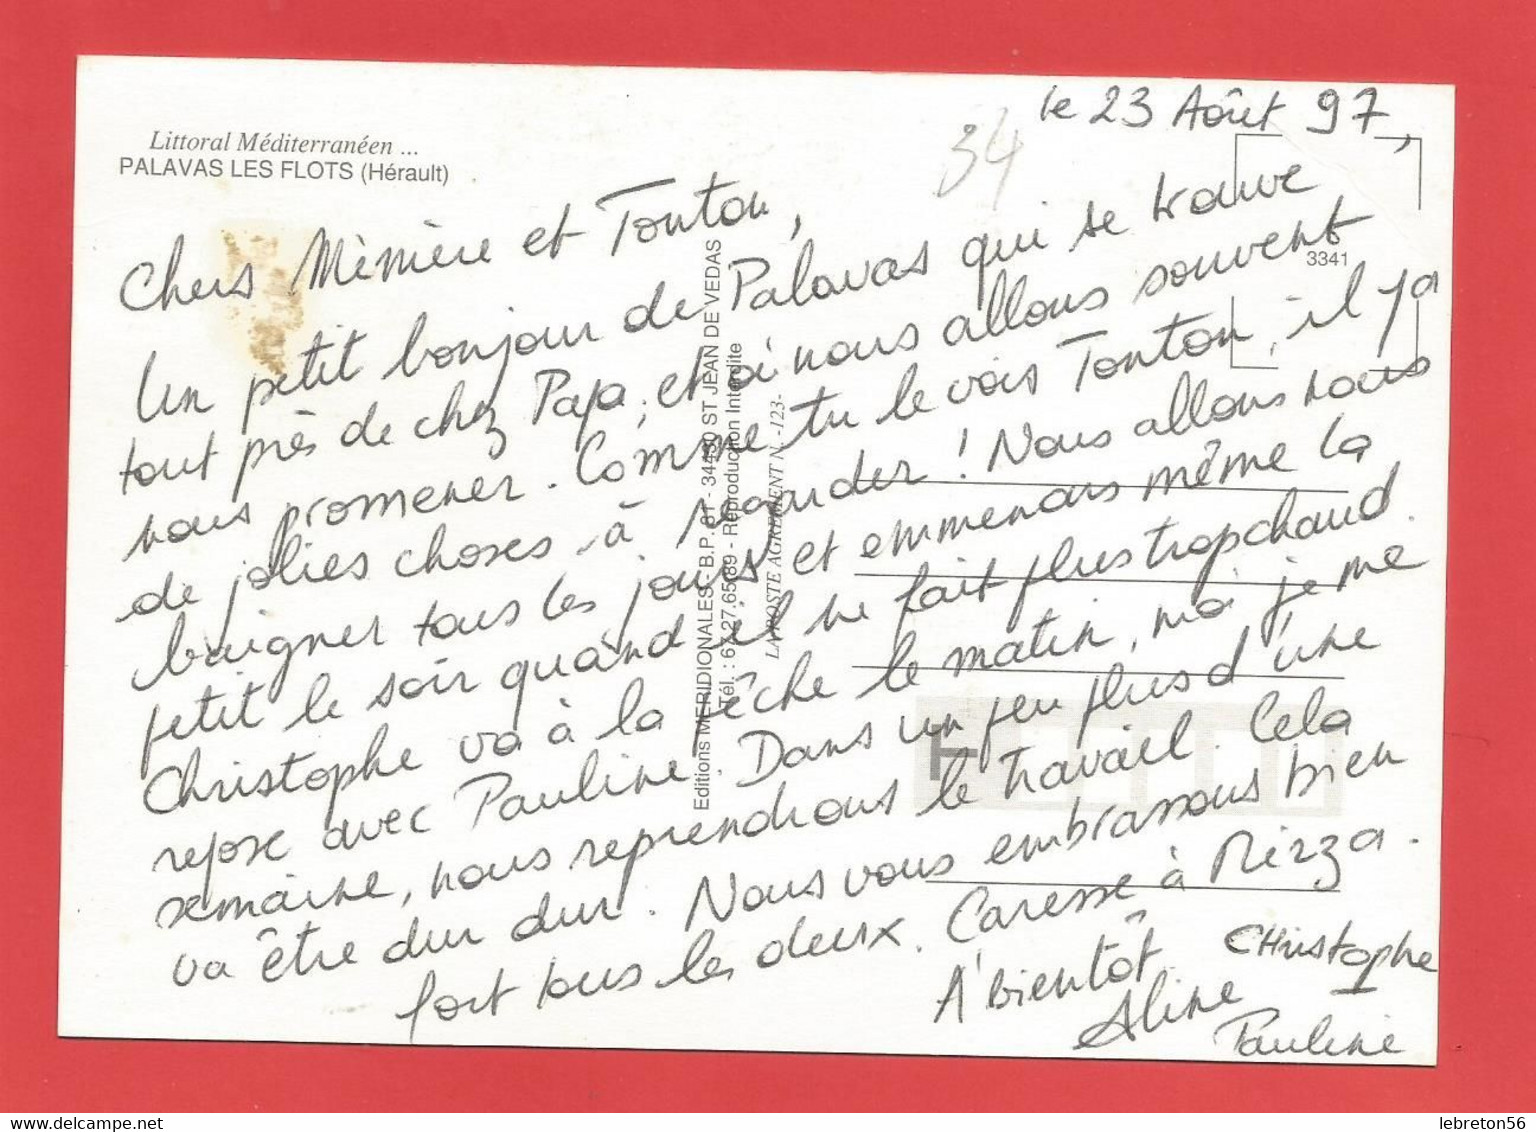 le 23 Août 97,
34
Littoral Méditerranéen ...
PALAVAS LES FLOTS (Hérault)
3341
Chers Mèmère et Tonton,
Un petit bonjour de Palavas qui se trouve
tout près de chez Papa, et où nous allons souvent
nous promener. Comme tu le vois Tonton, il y a
de jolies choses à regarder ! Nous allons nous
baigner tous les jours et emmenons même la
petit le soir quand il ne fait plus trop chaud.
Christophe va à la pêche le matin, moi je me
repose avec Pauline. Dans un peu plus d'une
semaine, nous reprendrons le travail. Cela
va être dur dur. Nous vous embrassons bien
fort tous les deux. Caresse à Mirza.
A bientôt.
Christophe
Aline
Pauline
Editions MERIDIONALES - B.P. 81 - 34430 ST JEAN DE VEDAS
Tél. : 67.27.65.89 - Reproduction Interdite
LA POSTE AGREMENT N. -123-
lebreton56